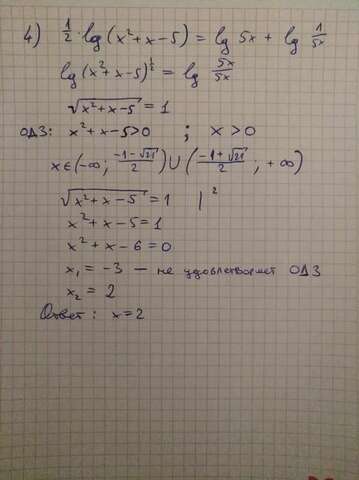 4) 1/2 · lg (x² + x - 5) = lg 5x + lg 1/5x
lg (x² + x - 5)^1/2 = lg 5x/5x
√(x² + x - 5) = 1
ОДЗ: x² + x - 5 > 0 ; x > 0
x ∈ (-∞; (-1 - √21)/2) ∪ ((-1 + √21)/2; +∞)
√(x² + x - 5) = 1 |²
x² + x - 5 = 1
x² + x - 6 = 0
x₁ = -3 — не удовлетворяет ОДЗ
x₂ = 2
Ответ: x = 2